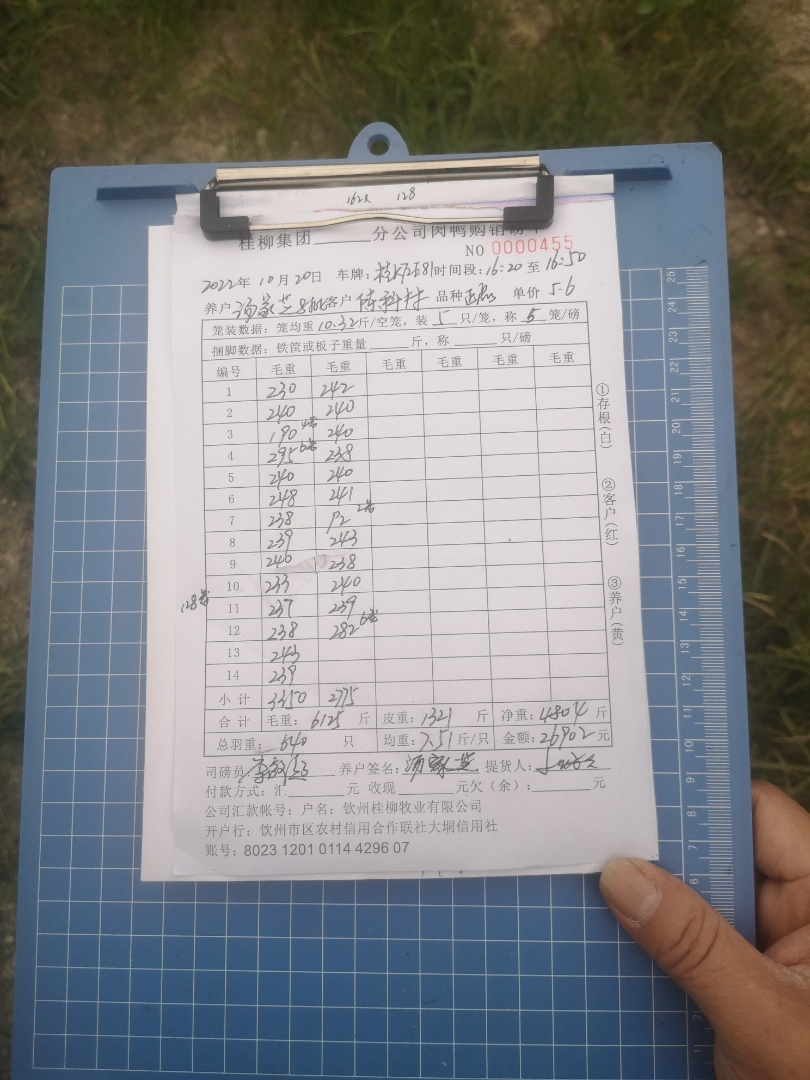 128
桂柳集团______分公司肉鸭购销磅单
NO 0000455
2022年10月20日 车牌: 时间段:16:20 至 16:50
养户 客户 品种 单价 5.6
笼装数据: 笼均重10.32斤/空笼, 装 5 只/笼, 称 5 笼/磅
捆脚数据: 铁筐或板子重量______斤, 称______只/磅
编号 毛重 毛重 毛重 毛重 毛重 毛重
1 230 242
2 240 240
3 190 240
4 295 238
5 240 240
6 248 241
7 238
8 239 243
9 240 238
10 233 240
11 237 239
12 238 282
13 243
14 239
小计 3350 2775
合计 毛重: 6125 斤 皮重: 1321 斤 净重: 4804 斤
总羽重: 640 只 均重: 7.51 斤/只 金额: 26902 元
司磅员 养户签名: 提货人:
付款方式: 汇______元 收现______元欠(余):______元
公司汇款帐号: 户名: 钦州桂柳牧业有限公司
开户行: 钦州市区农村信用合作联社大垌信用社
账号: 8023 1201 0114 4296 07
①存根(白)
②客户(红)
③养户(黄)
25
24
23
22
21
20
19
18
17
16
15
14
13
12
11
10
9
8
7
6